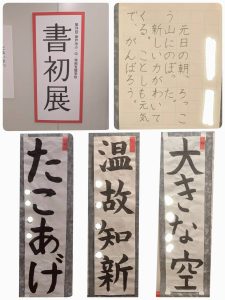 書初展
元日の朝、ろっこ
う山にのぼった。
新しい力がわいて
くる。ことしも元気
で、がんばろう。
たこあげ
温故知新
大きな空